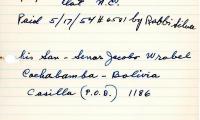 N.C.
Paid 5/17/54 # 0501 by Rabbi Silva
his Son - Senor Jacobo Wrobel
Cochabamba - Bolivia
Casilla (P.O.B.) 1186